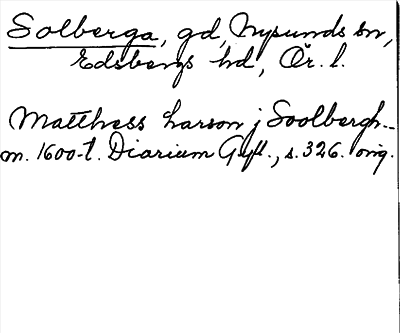 Solberga, gd, Nysunds sn,
Edsbergs hd, Ör. l.
Matthess Larson j Soolbergh.
m. 1600-t. Diarium Gyll., s. 326. orig.